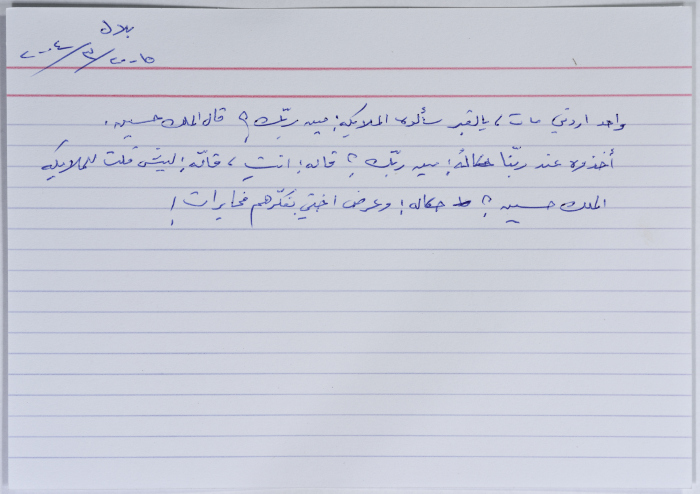 بلال
١
واحد اردني مات، بالقبر سألوه الملايكه: مين ربّك؟ قال الملك حسين.
أخذوه عند ربّنا حكالهُ: مين ربّك؟ قاله: انت، قالّه: ليش قلت للملايكه
الملك حسين؟ حكاله: وعرض اختي بفكّرهم مخابرات!